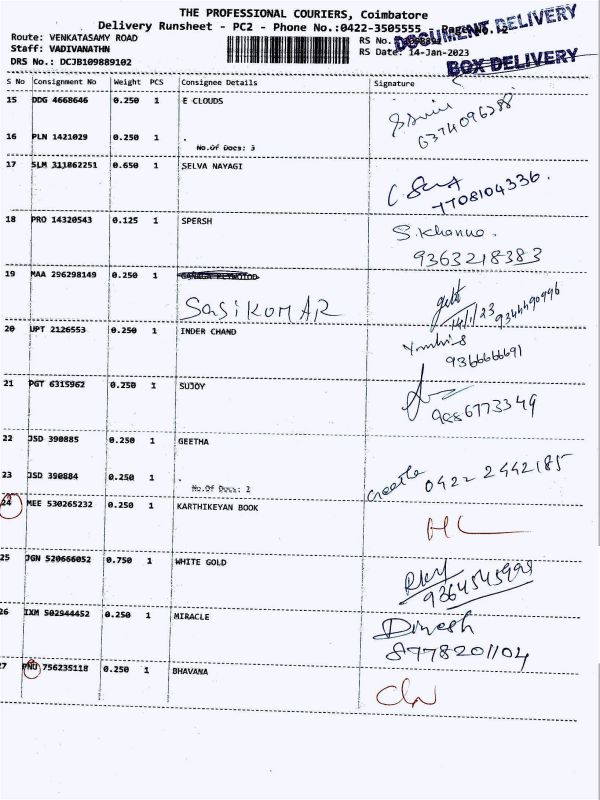 THE PROFESSIONAL COURIERS, Coimbatore
Delivery Runsheet - PC2 - Phone No.:0422-3505555
DOCUMENT DELIVERY
Route: VENKATASAMY ROAD
RS No.
Staff: VADIVANATHN
RS Date: 14-Jan-2023
DRS No.: DCJB109889102
BOX DELIVERY
S No Consignment No Weight PCS Consignee Details Signature
15 DDG 4668646 0.250 1 E CLOUDS
6374096288
16 PLN 1421029 0.250 1 .
No.Of Docs: 3
17 SLM 311862251 0.650 1 SELVA NAYAGI
7708104336.
18 PRO 14320543 0.125 1 SPERSH
S.Khanna.
9363218383
19 MAA 296298149 0.250 1
SASIKUMAR
14/1/23 9344490996
20 UPT 2126553 0.250 1 INDER CHAND
9366666691
21 PGT 6315962 0.250 1 SUJOY
9086773349
22 JSD 390885 0.250 1 GEETHA
23 JSD 390884 0.250 1 .
No.Of Docs: 2
Geetha 0422 2442185
24 MEE 530265232 0.250 1 KARTHIKEYAN BOOK
25 JGN 520666052 0.750 1 WHITE GOLD
9364545995
26 IXM 502944452 0.250 1 MIRACLE
Dinesh
8778201104
27 PNU 756235118 0.250 1 BHAVANA